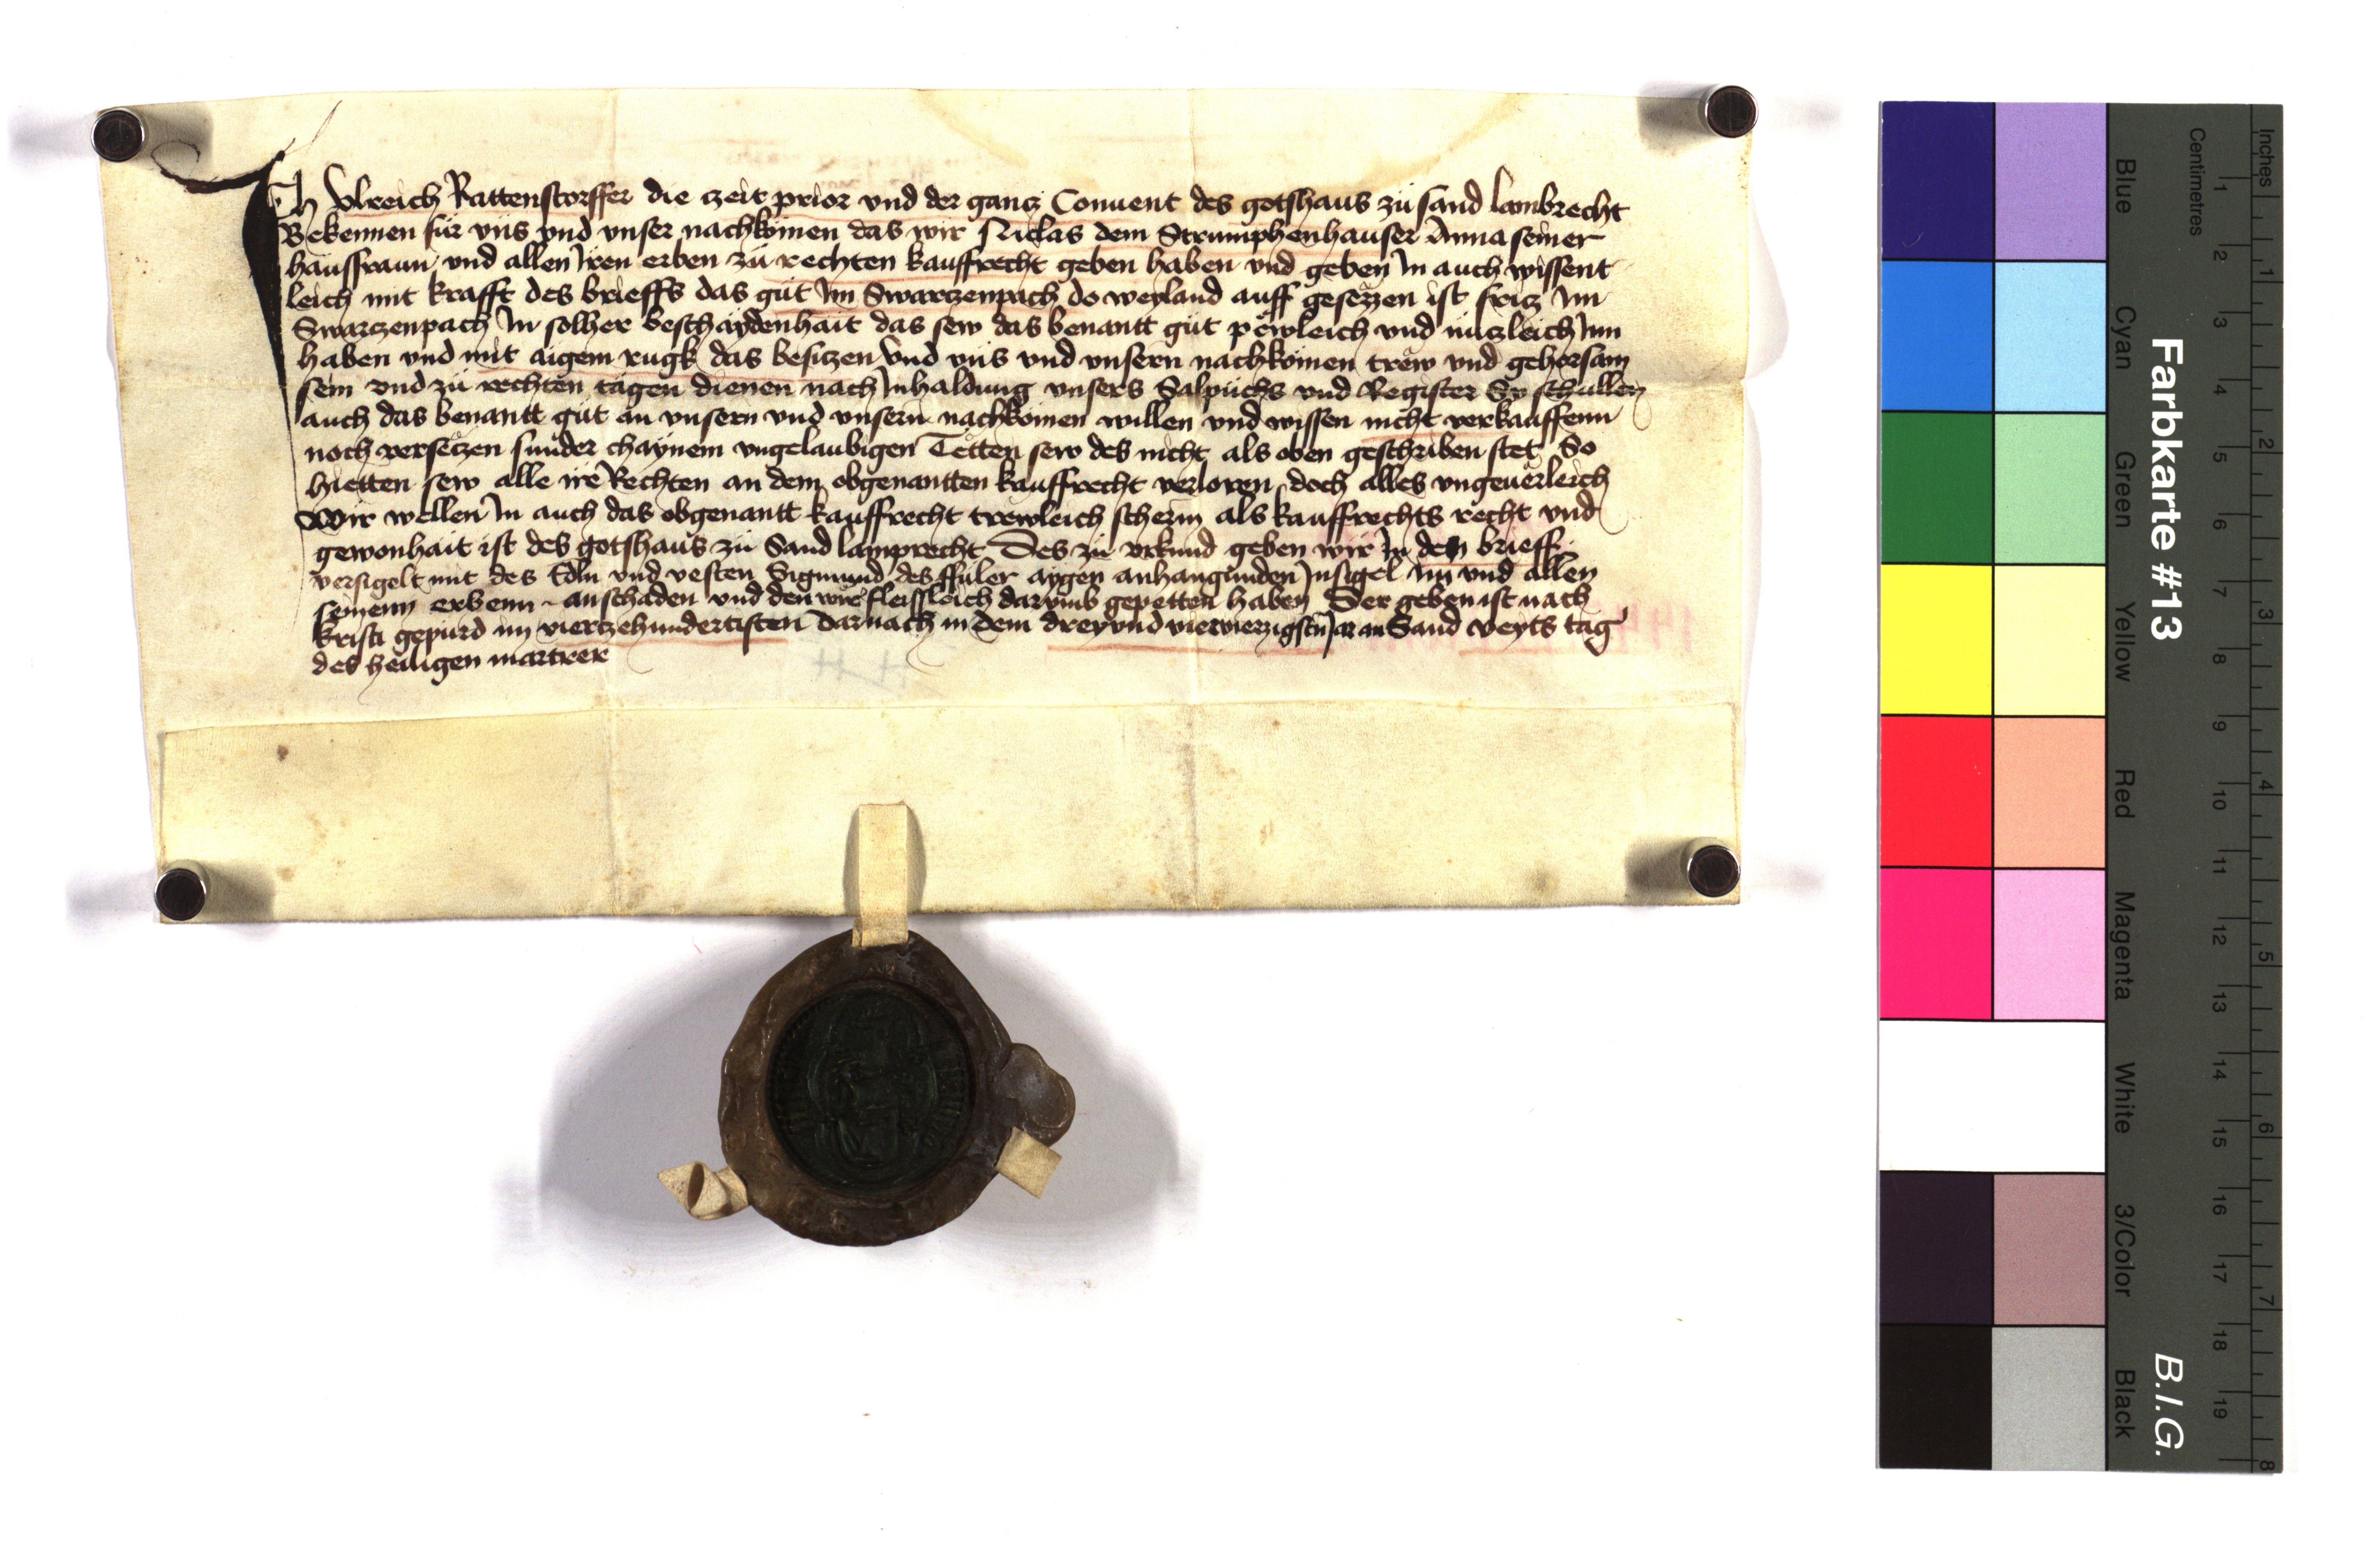 Ich Vlreich Rattenstorffer die zeit prior vnd der gancz Conuent des gotshaus zu sand lambrecht
Bekennen für vns vnd vnser nachkömen das wir Niclas dem Strumphenhauser Anna seiner
hausfraun vnd allen Iren erben zu rechten kauffrecht geben haben vnd geben In auch wissent
leich mit krafft des brieffs das gut Im Swarczenpach do weyland auff gesezzen ist fricz Im
Swarczenpach In solher beschaydenhait das sew das benantt gut pewleich vnd nuczleich Inn
haben vnd mit aigem rugk das besiczen Vnd vns vnd vnsern nachkömen trew vnd gehorsam
sein vnd zu rechten tagen dienen nach Inhaldung vnsers Salpuchs vnd Register Sy schullen
auch das benantt gut an vnsern vnd vnsern nachkomen willen vnd wissen nicht verkauffenn
noch verseczen sunder chaynem vngelaubigen Tetten sew des nicht als oben geschriben stet So
hietten sew alle ire Rechten an dem obgenantten kauffrecht verloren doch alles vngeuerleich
Wir wellen In auch das obgenantt kauffrecht trewleich scherm als kauffrechts recht vnd
gewonhait ist des gotshaus zu Sand lamprecht Des zu vrkund geben wir In den brieff
versigelt mit des Edln vnd vesten Sigmund des ffuler aygen anhangunden Insigel Im vnd allen
seinenn erbenn an schaden vnd den wir fleissleich darumb gepetten haben Der geben ist nach
kristi gepurd im vierczehundertisten Darnach in dem drey vnd vierczigstn Jar an Sand veyts tag
des heiligen martrer
Farbkarte #13
B.I.G.
Blue
Cyan
Green
Yellow
Red
Magenta
White
3/Color
Black
Centimetres
1 2 3 4 5 6 7 8 9 10 11 12 13 14 15 16 17 18 19
Inches
1 2 3 4 5 6 7 8